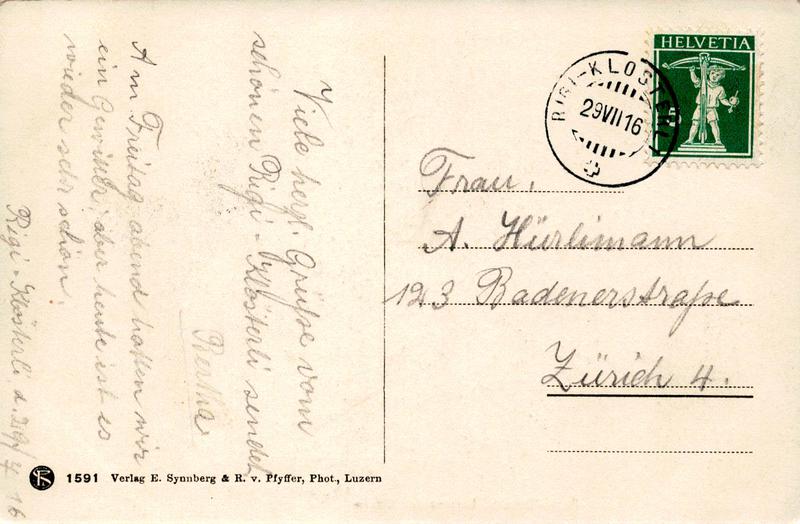 Viele herzl. Grüße vom
schönen Rigi-Klösterli sendet
Bertha
Am Freitag abend hatten wir
ein Gewitter, aber heute ist es
wieder sehr schön.
Rigi-Klösterli, d. 29/7 16
HELVETIA
5
RIGI-KLÖSTERLI
29 VII 16
Frau.
A. Hürlimann
123 Badenerstraße
Zürich 4.
1591 Verlag E. Synnberg & R. v. Pfyffer, Phot., Luzern